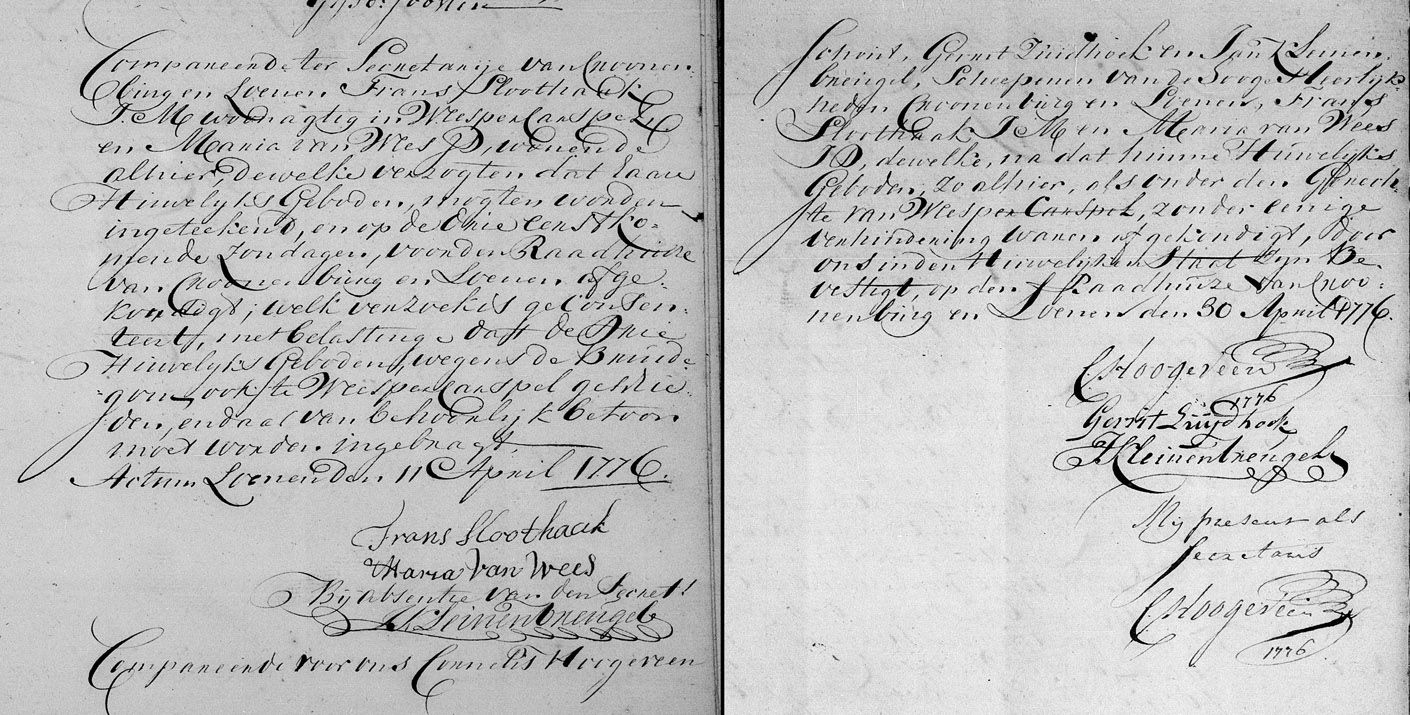 Compareerde ter Secretarije van Croonen-
burg en Loenen Frans Sloothaak
J. M woonagtig in Weespercarspel
en Maria van Wees JD, wonende
alhier, dewelke verzogten dat haare
Huwelijks Geboden, mogten worden
ingeteekend, en op de drie eerstko-
mende Zondagen, voor den Raadhuize
van Croonenburg en Loenen afge-
kondigt; welk verzoek is geconsen-
teert, met belasting dat de drie
Huwelijks Geboden, wegens de Bruide-
gom ook te Weespercarspel geschie-
den, en daar van behoorlijk betoon
moet worden ingebragt.
Actum Loenen den 11 April 1776.
Frans Sloothaak
Maria van Wees
Bij absentie van den Secret:
J. Kleinenbreugel
Compareerde voor ons Cornelis Hoogeveen
Schout, Gerrit Zuidhoek en Jan Kleinen-
breugel, Scheepenen van de Hooge Heerlijk-
heden Croonenburg en Loenen, Frans
Sloothaak J M en Maria van Wees
J D, dewelke, na dat hunne Huwelijks
Geboden, zo alhier, als onder den Gerech-
te van Weesper Carspel, zonder eenige
verhindering waren afgekondigt, door
ons in den Huwelijken Staat zijn Be-
vestigt, op den Raadhuize van Croo-
nenburg en Loenen den 30 April 1776.
C. Hoogeveen
1776
Gerrit Zuijdhoek
J Kleinenbreugel
My present als
Secretaris
C. Hoogeveen
1776.